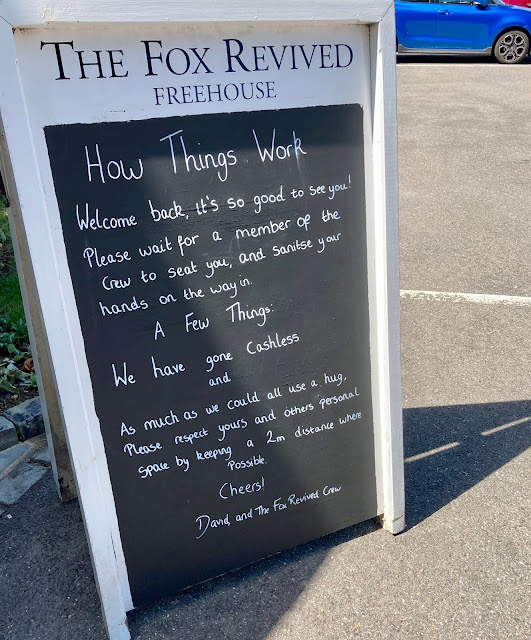 THE FOX REVIVED
FREEHOUSE
How Things Work
Welcome back, it's so good to see you!
Please wait for a member of the
Crew to seat you, and sanitse your
hands on the way in.
A Few Things:
We have gone Cashless
and
As much as we could all use a hug,
Please respect yours and others personal
space by keeping a 2m distance where
Possible.
Cheers!
David, and The Fox Revived Crew